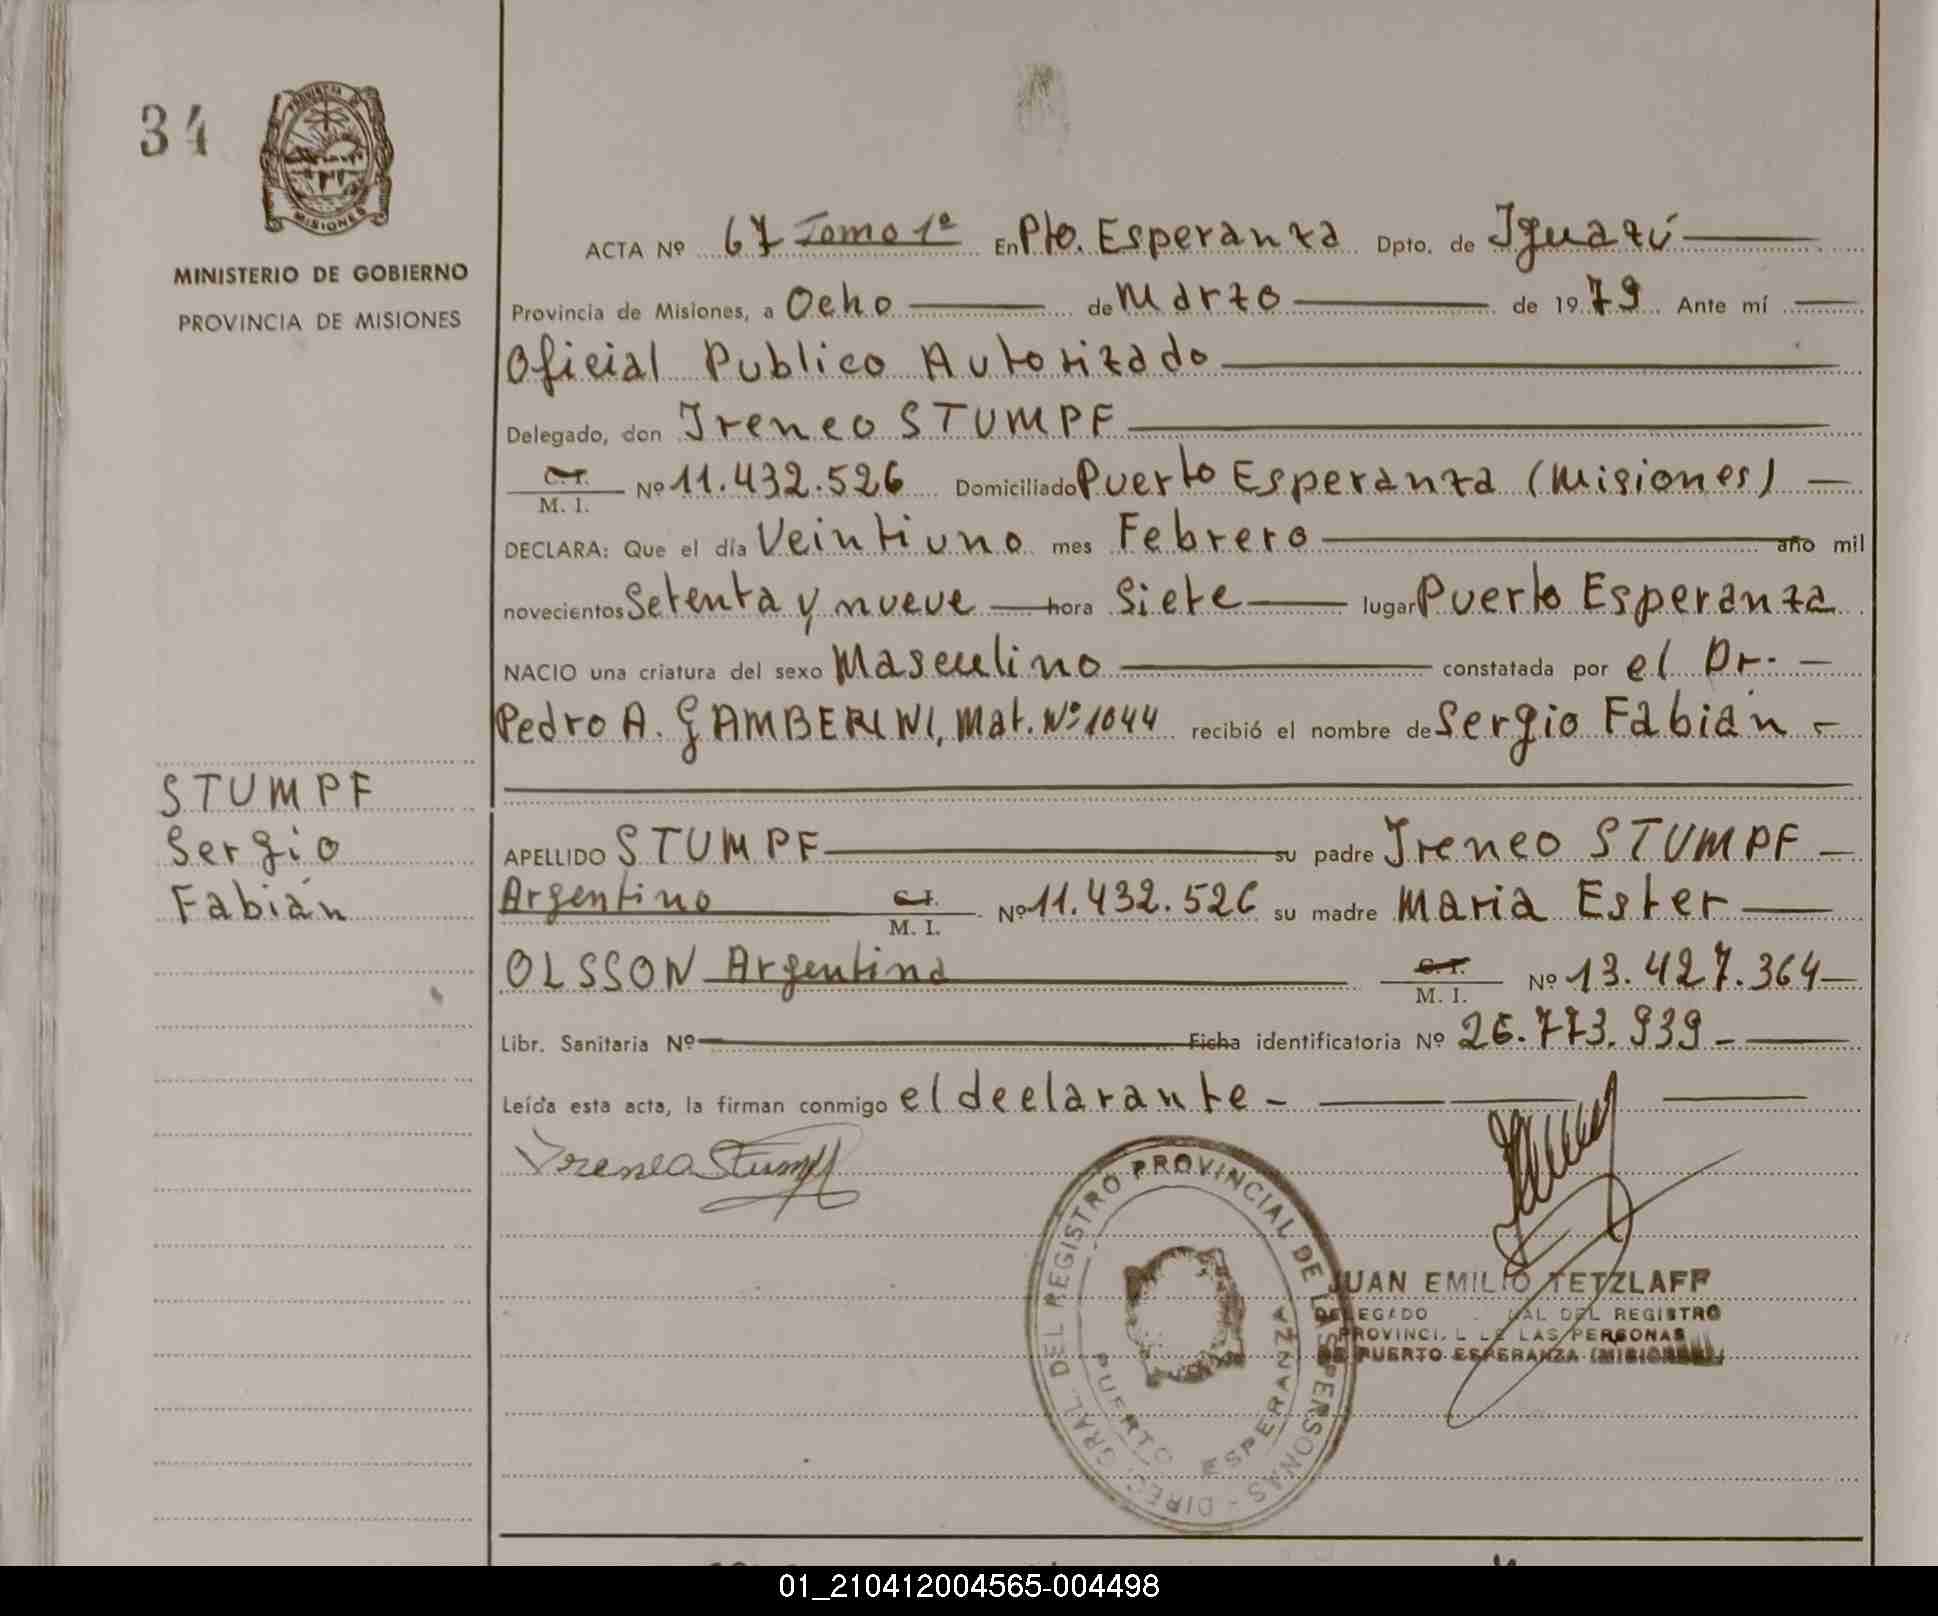 34
MINISTERIO DE GOBIERNO
PROVINCIA DE MISIONES
STUMPF
Sergio
Fabián
ACTA Nº 67 Tomo 1º En Pto. Esperanza Dpto. de Iguazú
Provincia de Misiones, a Ocho de Marzo de 1979 Ante mí
Oficial Publico Autorizado
Delegado, don Ireneo STUMPF
C.I. M. I. Nº 11.432.526 Domiciliado Puerto Esperanza (Misiones)
DECLARA: Que el día Veintiuno mes Febrero año mil
novecientos Setenta y nueve hora Siete lugar Puerto Esperanza
NACIO una criatura del sexo Masculino constatada por el Dr.
Pedro A. GAMBERINI, Mat. Nº 1044 recibió el nombre de Sergio Fabián
APELLIDO STUMPF su padre Ireneo STUMPF
Argentino C.I. M. I. Nº 11.432.526 su madre Maria Ester
OLSSON Argentina C.I. M. I. Nº 13.427.364
Libr. Sanitaria Nº Ficha identificatoria Nº 26.773.939
Leída esta acta, la firman conmigo el declarante
Ireneo Stumpf
DIREC. GRAL. DEL REGISTRO PROVINCIAL DE LAS PERSONAS
PUERTO ESPERANZA
JUAN EMILIO TETZLAFF
DELEGADO DEL REGISTRO
PROVINCIAL DE LAS PERSONAS
DE PUERTO ESPERANZA (MISIONES)
01_210412004565-004498